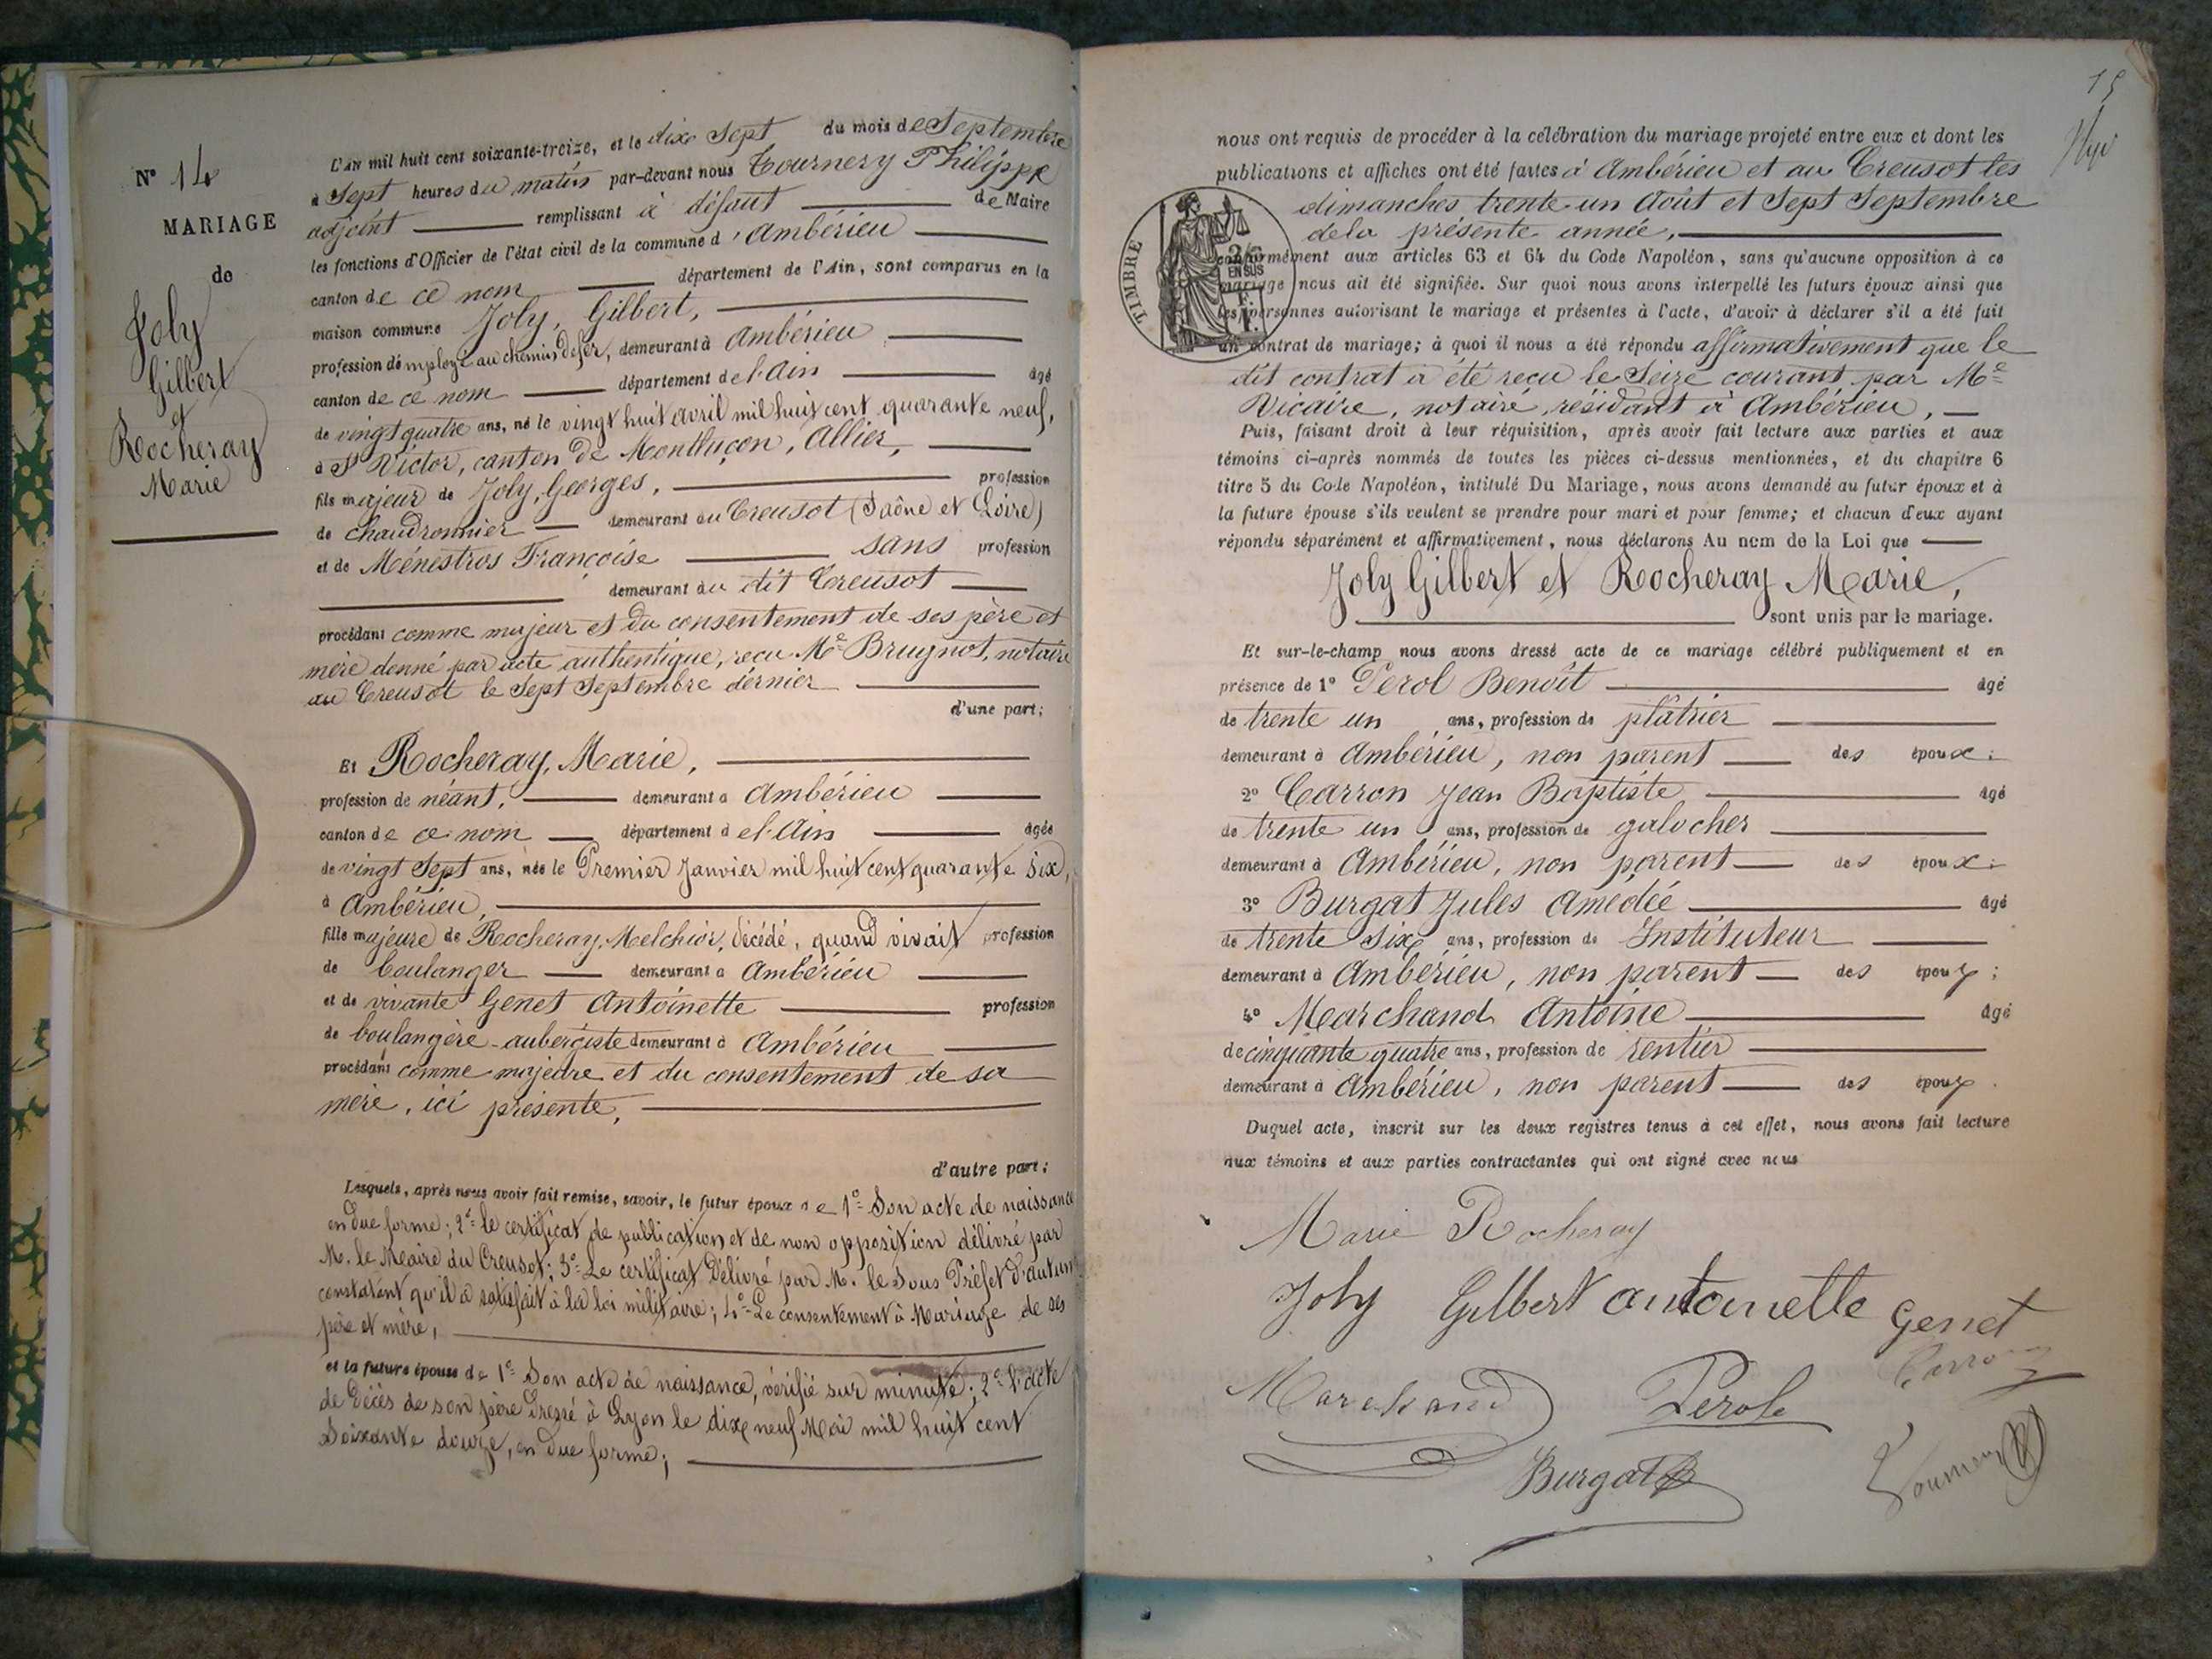 N° 14
MARIAGE
de
Joly
Gilbert
et
Rocheray
Marie
L'AN mil huit cent soixante-treize, et le dix Sept du mois de Septembre
à Sept heures du matin par-devant nous Tournery Philippe
adjoint remplissant à défaut de Maire
les fonctions d'Officier de l'état civil de la commune d'Ambérieu
canton de ce nom département de l'Ain, sont comparus en la
maison commune Joly, Gilbert,
profession d'employé au chemin de fer, demeurant à Ambérieu
canton de ce nom département de l'Ain âgé
de vingt quatre ans, né le vingt huit avril mil huit cent quarante neuf,
à St Victor, canton de Montluçon, Allier,
fils majeur de Joly, Georges, profession
de chaudronnier demeurant au Creusot (Saône et Loire)
et de Ménestros Françoise sans profession
demeurant au dit Creusot
procédant comme majeur et du consentement de ses père et
mère donné par acte authentique, reçu Me Brugnot, notaire
au Creusot le Sept Septembre dernier
d'une part;
Et Rocheray, Marie,
profession de néant, demeurant à Ambérieu
canton de ce nom département de l'Ain âgée
de vingt Sept ans, née le Premier Janvier mil huit cent quarante Six,
à Ambérieu,
fille majeure de Rocheray, Melchior, décédé, quand vivait profession
de boulanger demeurant à Ambérieu
et de vivante Genet Antoinette profession
de boulangère-aubergiste demeurant à Ambérieu
procédant comme majeure et du consentement de sa
mère, ici présente,
d'autre part;
Lesquels, après nous avoir fait remise, savoir, le futur époux de 1° Son acte de naissance
en due forme; 2° le certificat de publication et de non opposition délivré par
M. le Maire du Creusot; 3° Le certificat délivré par M. le Sous Préfet d'autun
constatant qu'il a satisfait à la loi militaire; 4° Le consentement à Mariage de ses
père et mère,
et la future épouse de 1° Son acte de naissance, vérifié sur minute; 2° L'acte
de Décès de son père Dressé à Lyon le dix neuf Mai mil huit cent
Soixante douze, en due forme;
15
nous ont requis de procéder à la célébration du mariage projeté entre eux et dont les
publications et affiches ont été faites à Ambérieu et au Creusot les
dimanches trente un Août et Sept Septembre
de la présente année,
TIMBRE
2/10 EN SUS
1 F.
conformément aux articles 63 et 64 du Code Napoléon, sans qu'aucune opposition à ce
mariage nous ait été signifiée. Sur quoi nous avons interpellé les futurs époux ainsi que
les personnes autorisant le mariage et présentes à l'acte, d'avoir à déclarer s'il a été fait
un contrat de mariage; à quoi il nous a été répondu affirmativement que le
dit contrat a été reçu le Seize courant par Me
Vicaire, notaire, résidant à Ambérieu,
Puis, faisant droit à leur réquisition, après avoir fait lecture aux parties et aux
témoins ci-après nommés de toutes les pièces ci-dessus mentionnées, et du chapitre 6
titre 5 du Code Napoléon, intitulé Du Mariage, nous avons demandé au futur époux et à
la future épouse s'ils veulent se prendre pour mari et pour femme; et chacun d'eux ayant
répondu séparément et affirmativement, nous déclarons Au nom de la Loi que
Joly Gilbert et Rocheray Marie,
sont unis par le mariage.
Et sur-le-champ nous avons dressé acte de ce mariage célébré publiquement et en
présence de 1° Perol Benoît âgé
de trente un ans, profession de plâtrier
demeurant à Ambérieu, non parent des époux;
2° Carron Jean Baptiste âgé
de trente un ans, profession de galocher
demeurant à Ambérieu, non parent des époux;
3° Burgat Jules Amédée âgé
de trente Six ans, profession de Instituteur
demeurant à Ambérieu, non parent des époux;
4° Marchand Antoine âgé
de cinquante quatre ans, profession de rentier
demeurant à Ambérieu, non parent des époux.
Duquel acte, inscrit sur les deux registres tenus à cet effet, nous avons fait lecture
aux témoins et aux parties contractantes qui ont signé avec nous
Marie Rocheray
Joly Gilbert antoinette Genet
Carron
Marchand Perol
Burgat Tournery